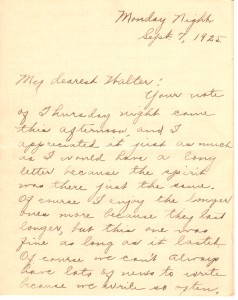 Monday Night
Sept 7, 1925
My dearest Walter:
Your note
of Thursday night came
this afternoon, and I
appreciated it just as much
as I would have a long
letter because the spirit
was there just the same.
Of course I enjoy the longer
ones more because they last
longer, but this one was
fine as long as it lasted.
Of course we can't always
have lots of news to write
because we write so often.